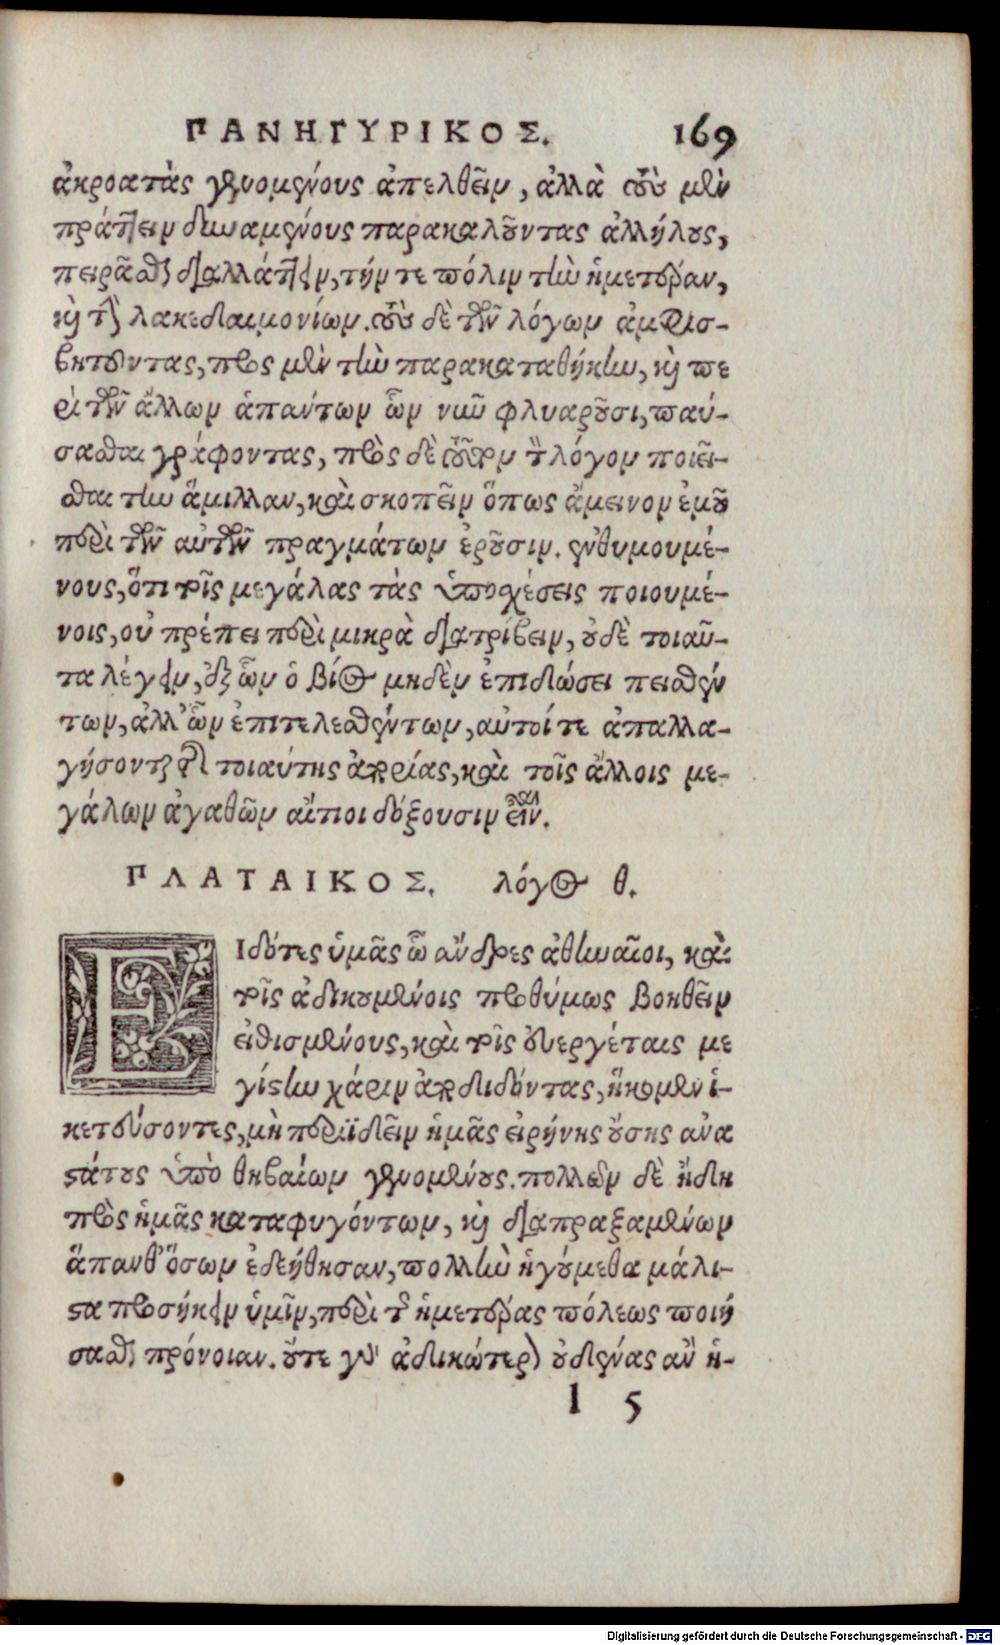 ΠΑΝΗΓΥΡΙΚΟΣ. 169
ἀκροατὰς γενομένους ἀπελθεῖν, ἀλλὰ τοὺς μὲν
πράττειν δυναμένους παρακαλοῦντας ἀλλήλους,
πειρᾶσθαι διαλλάττειν, τήν τε πόλιν τὴν ἡμετέραν,
καὶ τὴν λακεδαιμονίων. τοὺς δὲ τῶν λόγων ἀμφισ-
βητοῦντας, πρὸς μὲν τὴν παρακαταθήκην, καὶ πε
ρὶ τῶν ἄλλων ἁπάντων ὧν νῦν φλυαροῦσι, παύ-
σασθαι γράφοντας, πρὸς δὲ τοῦτον τὸν λόγον ποιεῖ-
σθαι τὴν ἅμιλλαν, καὶ σκοπεῖν ὅπως ἄμεινον ἐμοῦ
περὶ τῶν αὐτῶν πραγμάτων ἐροῦσιν. ἐνθυμουμέ-
νους, ὅτι τοῖς μεγάλας τὰς ὑποσχέσεις ποιουμέ-
νοις, οὐ πρέπει περὶ μικρὰ διατρίβειν, οὐδὲ τοιαῦ-
τα λέγειν, ἐξ ὧν ὁ βίος μηδὲν ἐπιδώσει πεισθέν
των, ἀλλ' ὧν ἐπιτελεσθέντων, αὐτοί τε ἀπαλλα-
γήσονται τῆς τοιαύτης ἀπορίας, καὶ τοῖς ἄλλοις με-
γάλων ἀγαθῶν αἴτιοι δόξουσιν εἶναι.
ΠΛΑΤΑΙΚΟΣ. λόγος θ.
ΕΙδότες ὑμᾶς ὦ ἄνδρες ἀθηναῖοι, καὶ
τοῖς ἀδικουμένοις προθύμως βοηθεῖν
εἰθισμένους, καὶ τοῖς εὐεργέταις με
γίστην χάριν ἀποδιδόντας, ἥκομεν ἱ-
κετεύσοντες, μὴ περιϊδεῖν ἡμᾶς εἰρήνης οὔσης ἀνα
στάτους ὑπὸ θηβαίων γενομένους. πολλῶν δὲ ἤδη
πρὸς ἡμᾶς καταφυγόντων, καὶ διαπραξαμένων
ἅπανθ' ὅσων ἐδεήθησαν, πολλὴν ἡγούμεθα μάλι-
στα προσήκειν ὑμῖν, περὶ τῆς ἡμετέρας πόλεως ποιή
σασθαι πρόνοιαν. οὔτε γὰρ ἀδικώτερον οὐδένας ἂν ἡ-
l 5
Digitalisierung gefördert durch die Deutsche Forschungsgemeinschaft - DFG